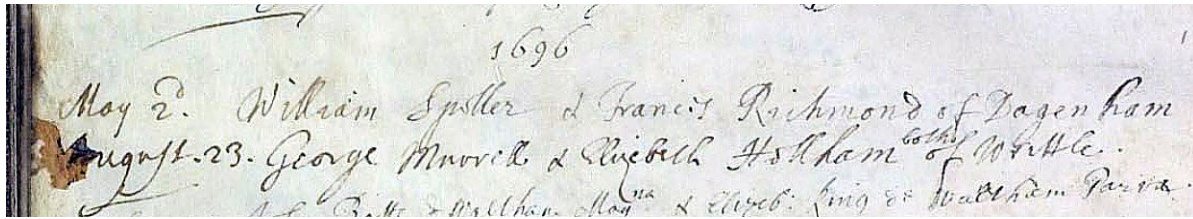 1696
May 2d. William Spiller & Francis Richmond of Dagenham
August. 23. George Murrell & Elizebeth Hollham both of Writtle.
Waltham Mag na & Elizeb: King de Waltham Parva.